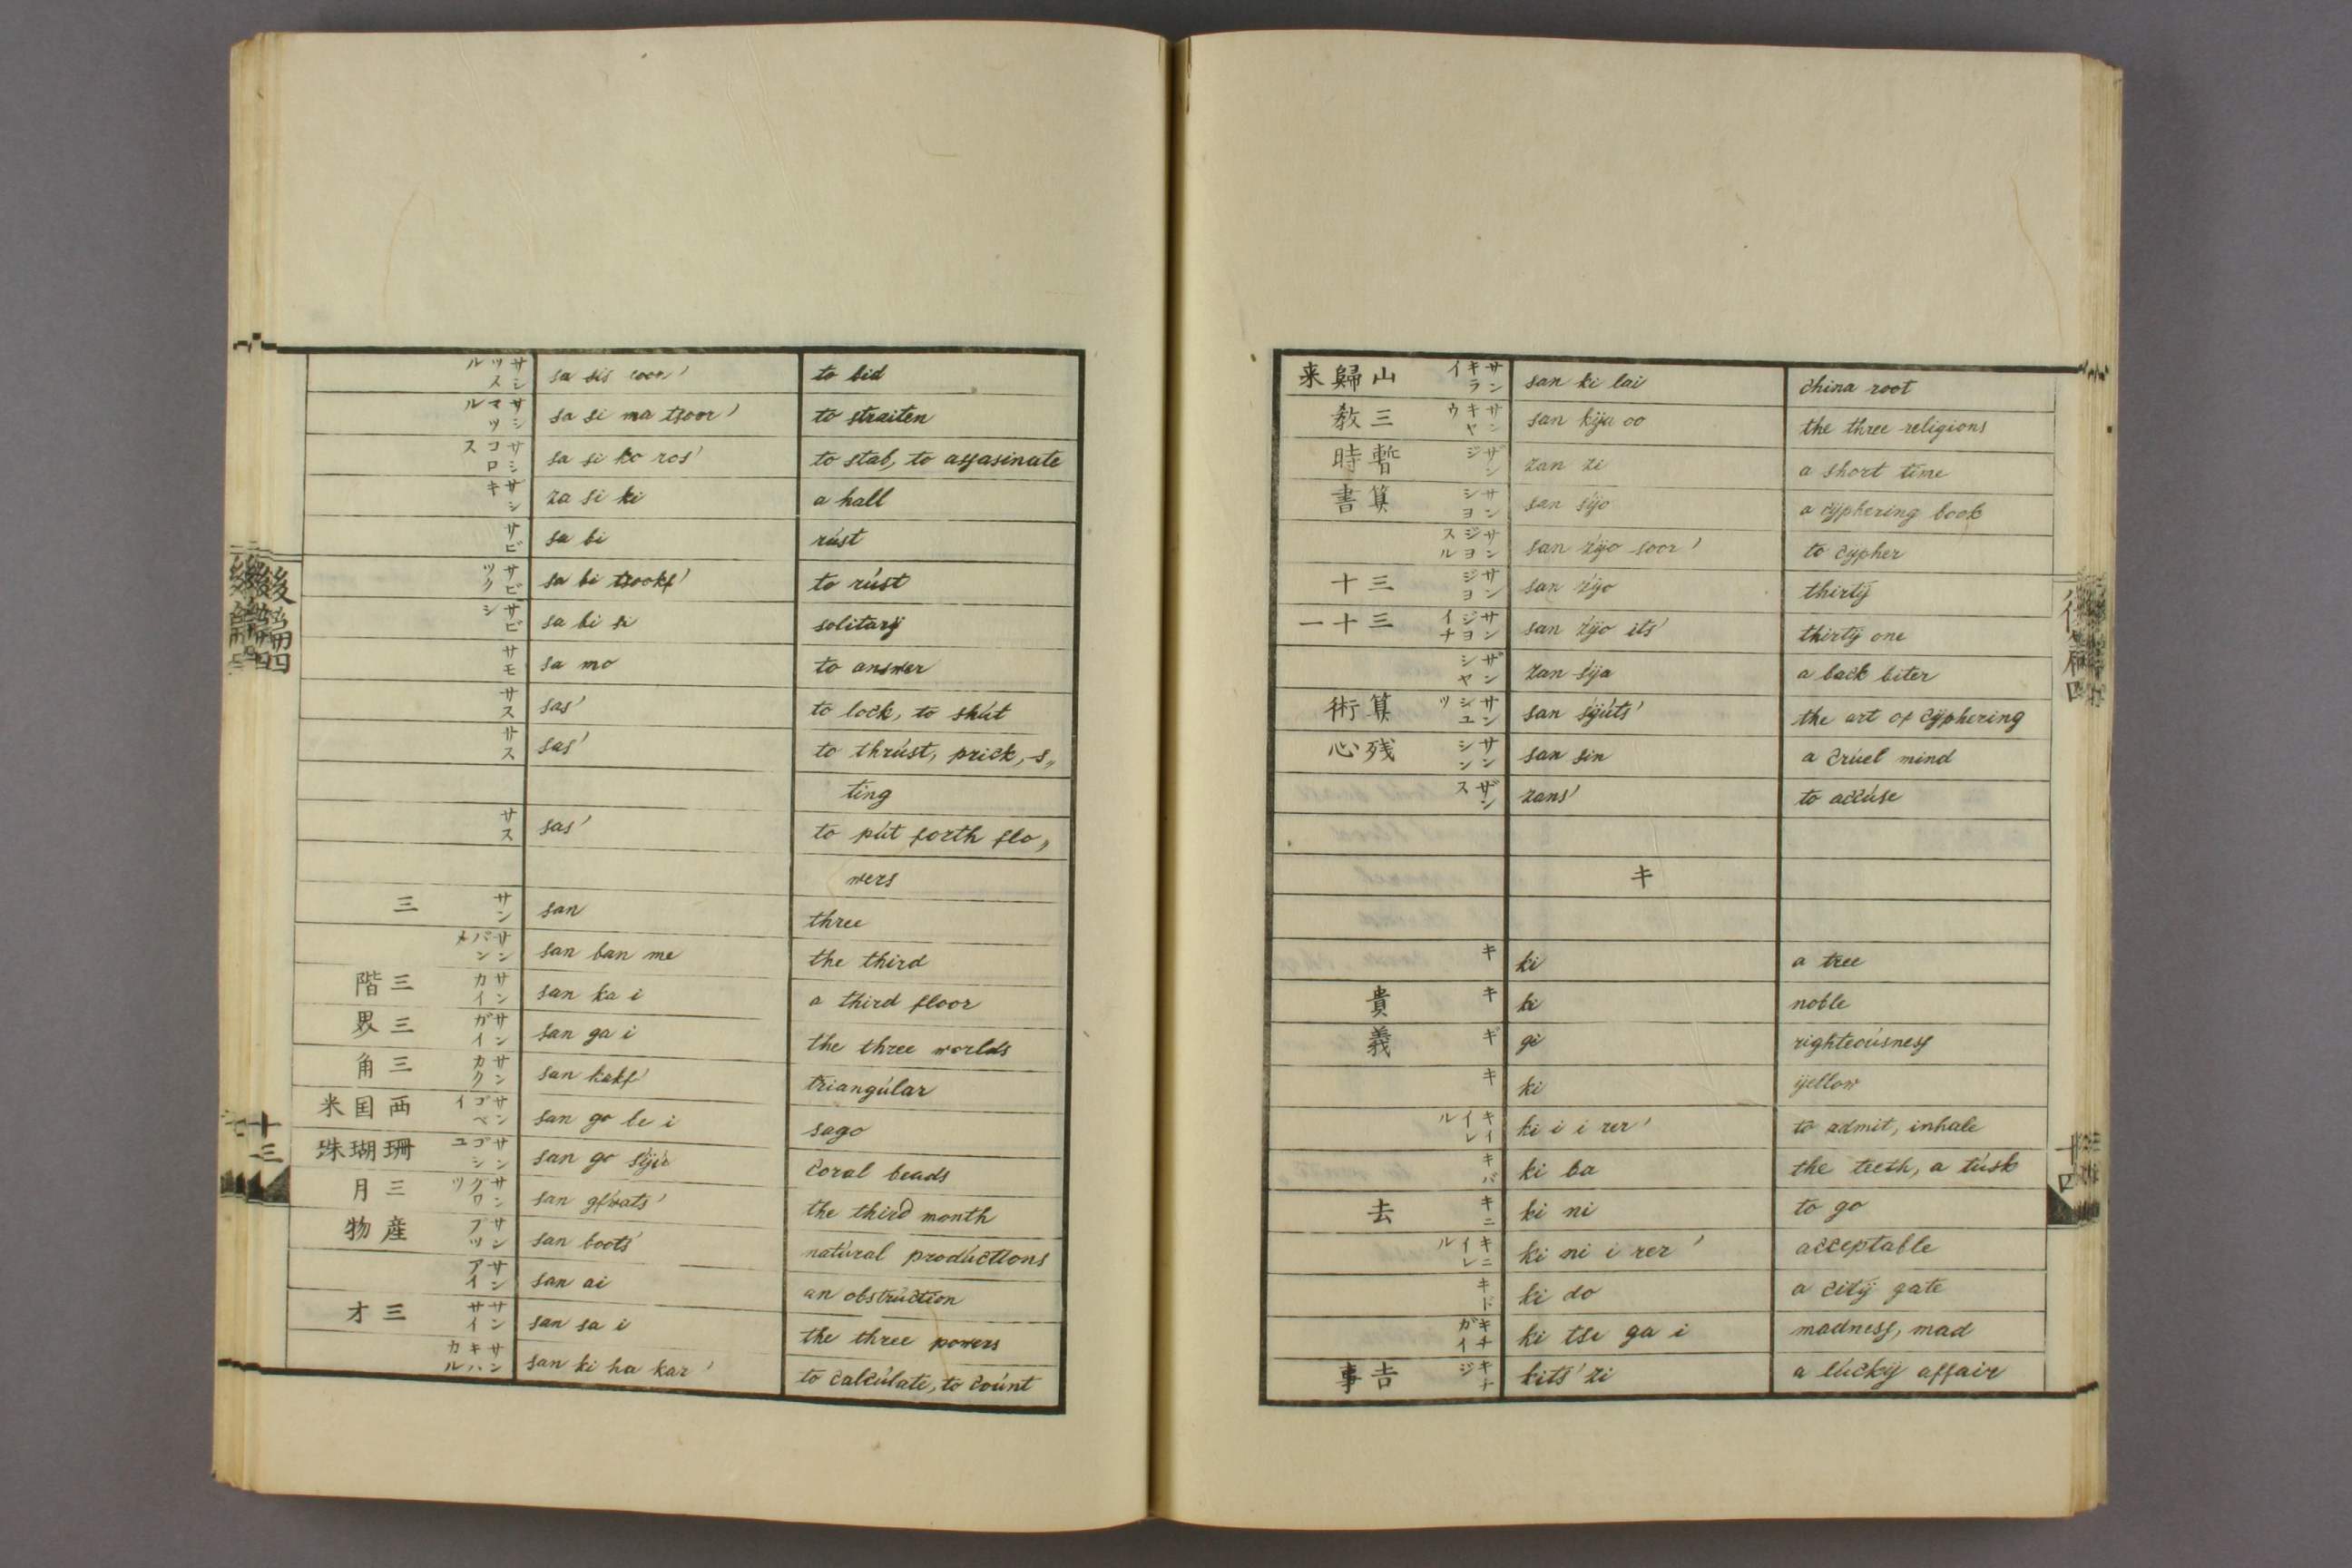 サシツスル sa sis soor' to bid
サシマツル sa si ma tsoor' to straiten
サシコロス sa si ko ros' to stab, to assasinate
ザシキ za si ki a hall
サビ sa bi rúst
サビツク sa bi tsookf' to rúst
サビシ sa bi si solitarÿ
サモ sa mo to answer
サス sas' to lock, to shút
サス sas' to thrúst, prick, s„
ting
サス sas' to pút forth flo„
wers
三 サン san three
サンバンメ san ban me the third
三階 サンカイ san ka i a third floor
三界 サンガイ san ga i the three worlds
三角 サンカク san kakf' triangúlar
西国米 サンゴベイ san go be i sago
珊瑚珠 サンゴシユ san go sÿú coral beads
三月 サングワツ san gfwats' the third month
産物 サンブツ san boots' natúral prodúctions
サンアイ san ai an obstrúction
三才 サンサイ san sa i the three powers
サンキハカル san ki ha kar' to calcúlate, to coúnt
後篇四
十三
山歸来 サンキライ san ki lai china root
三教 サンキヤウ san kÿa oo the three religions
暫時 ザンジ zan zi a short time
算書 サンシヨ san sÿo a cÿphering book
サンジヨスル san zÿo soor' to cÿpher
三十 サンジヨ san zÿo thirtÿ
三十一 サンジヨイチ san zÿo its' thirtÿ one
ザンシヤ zan sÿa a back biter
算術 サンシユツ san sÿúts' the art of cÿphering
残心 サンシン san sin a crúel mind
ザンス zans' to accúse
キ
キ ki a tree
貴 キ ki noble
義 ギ gi righteoúsness
キ ki ÿellow
キイイレル ki i i rer' to admit, inhale
キバ ki ba the teeth, a túsk
去 キニ ki ni to go
キニイレル ki ni i rer' acceptable
キド ki do a citÿ gate
キチガイ ki tsi ga i madness, mad
吉事 キチジ kits' zi a lúckÿ affair
後篇四
十四